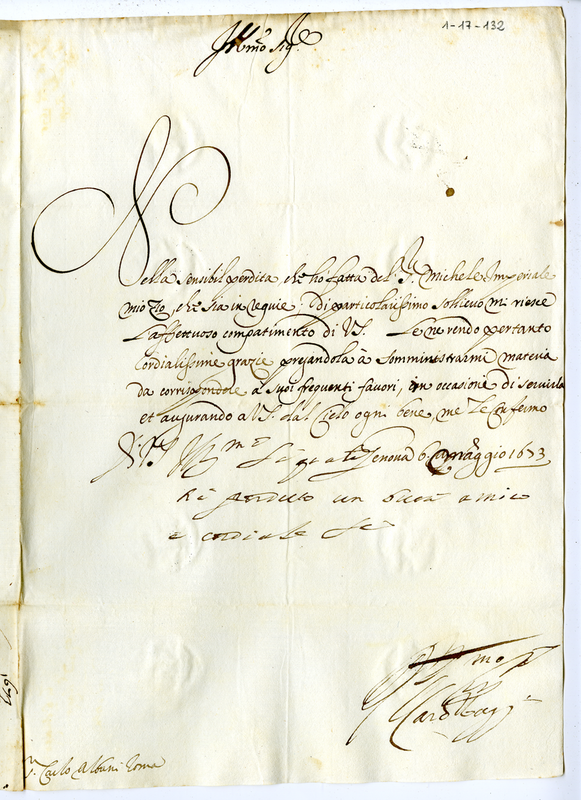 1-17-132
Illmo Sig.re
Nella sensibil perdita, che ho fatta del S. Michele Imperiale
mio Zio, che sia in requie; di particolarissimo sollievo mi riesce
l'affettuoso compatimento di VS. Le ne rendo pertanto
cordialissime grazie pregandola à somministrarmi materia
da corrispondere a suoi frequenti favori, in occasione di servirla
et augurando a VS. dal Cielo ogni bene, me le confermo
Genova 6 Maggio 1673
hà perduto un buon amico
e cordiale
S. Carlo Albani Roma